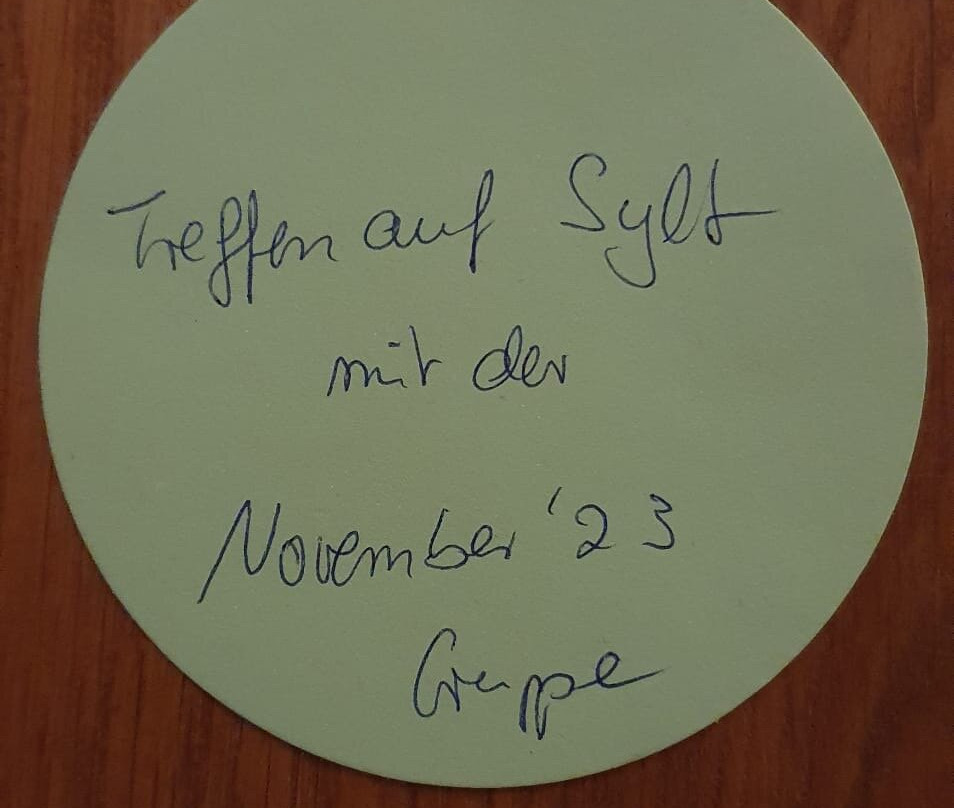 Treffen auf Sylt
mit der
November '23
Gruppe